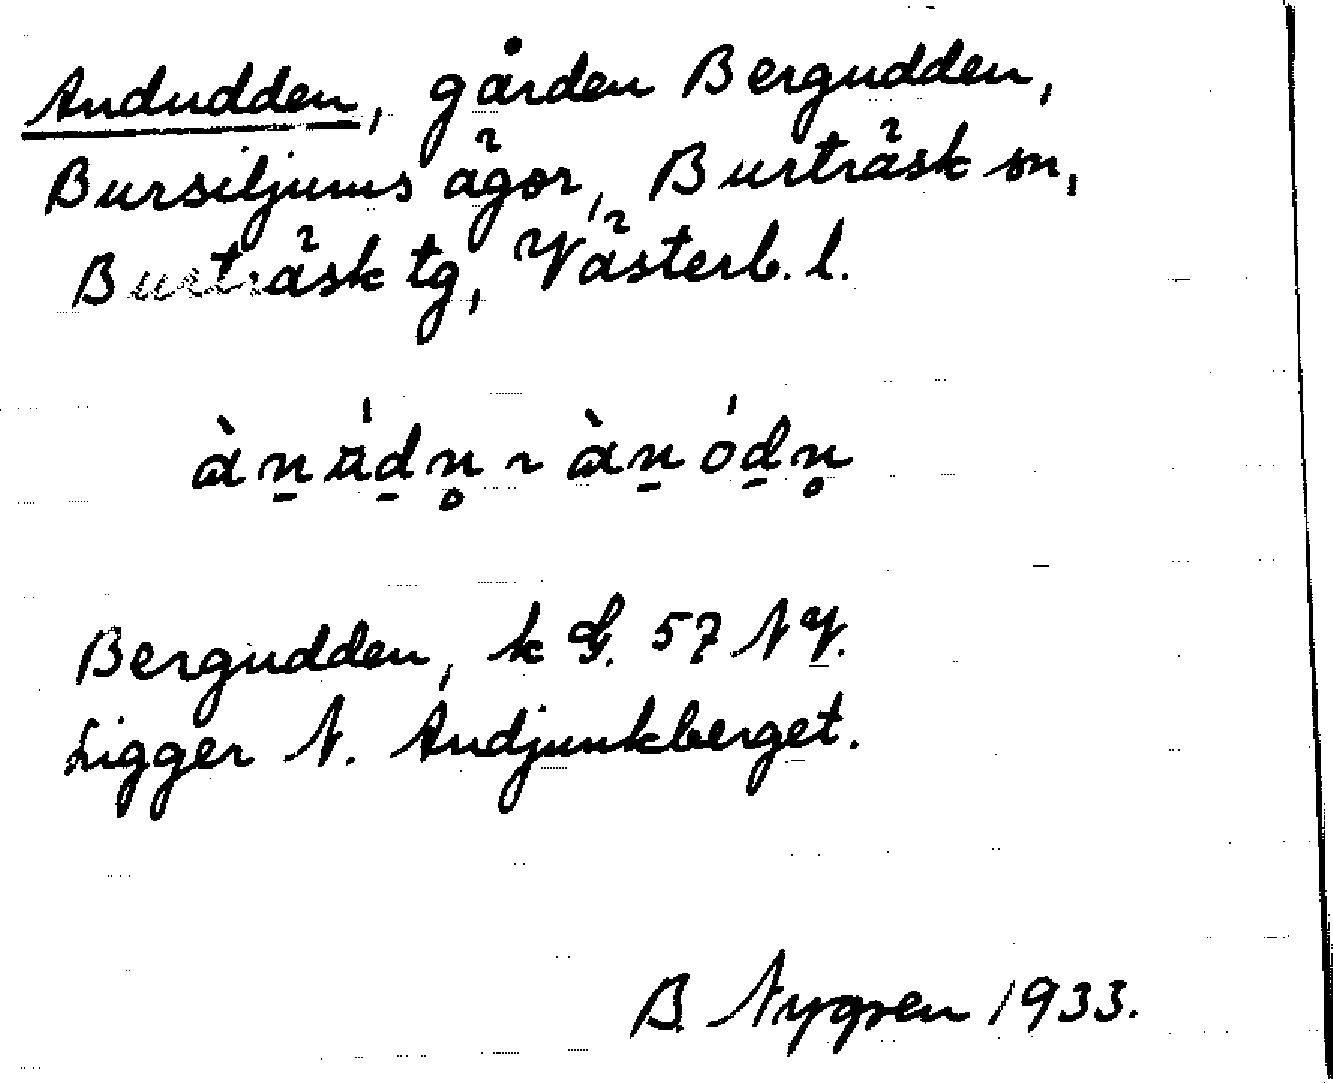 Andudden, gården Bergudden,
Bursiljums ägor, Burträsk sn,
Burträsk tg, Västerb. l.
Bergudden, k G. 57 NV.
Ligger N. Andjunkberget.
B. Nygren 1933.